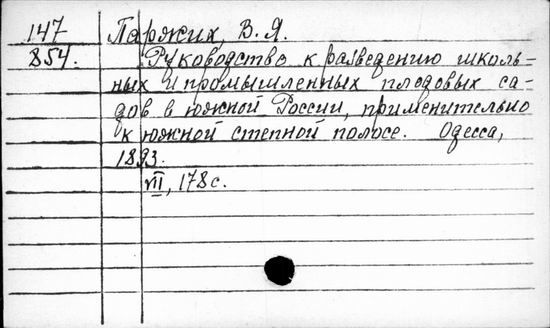 147 Паржих, В. Я.
854. Руководство к разведению школь=
ных и промышленных плодовых са-
дов в южной России, применительно
к южной степной полосе. Одесса,
1893.
VII, 178 с.